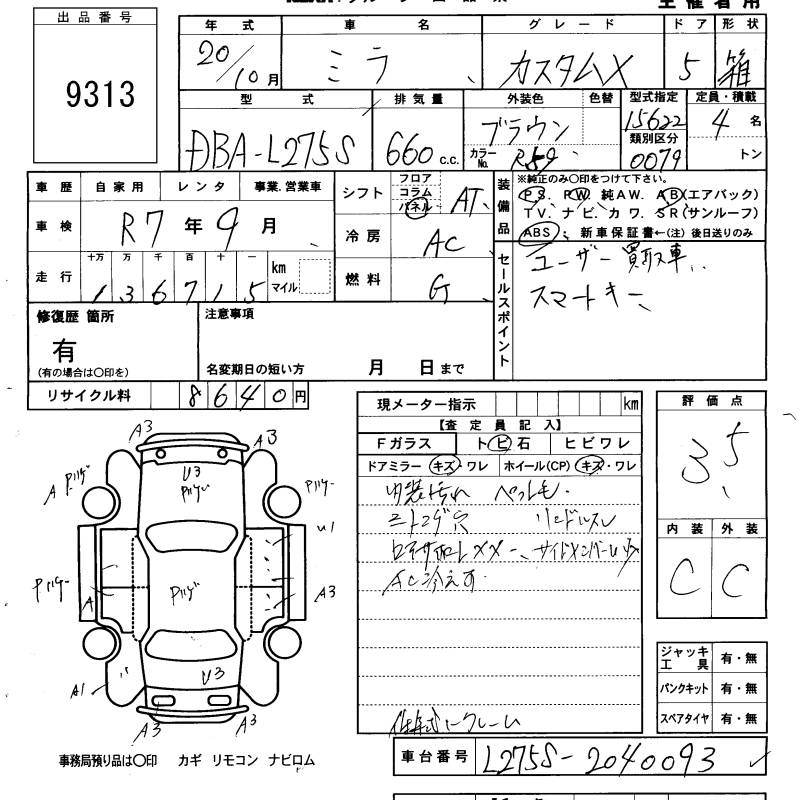 主催者用
出品番号
9313
年式 車名 グレード ドア 形状
20/10月 ミラ カスタムX 5 箱
型式 排気量 外装色 色替 型式指定 定員・積載
DBA-L275S 660c.c. ブラウン 15622 4名
カラーNo. R59 類別区分 0079 トン
車歴 自家用 レンタ 事業、営業車
車検 R7年9月
走行 十万 万 千 百 十 一 km マイル
1 3 6 7 1 5
シフト フロア コラム パネル AT
冷房 AC
燃料 G
装備品
※純正のみ○印をつけて下さい。
P S. P W. 純AW. A B(エアバック)
T V. ナビ. カワ. S R(サンルーフ)
ABS 新車保証書←(注)後日送りのみ
セールスポイント
ユーザー買取車
スマートキー
修復歴 箇所
有
(有の場合は○印を)
注意事項
名変期日の短い方 月 日まで
リサイクル料 8 6 4 0 円
現メーター指示 km
【査定員記入】
Fガラス トビ石 ヒビワレ
ドアミラー キズ・ワレ ホイール(CP) キズ・ワレ
内装汚れ ペット毛
ニトコゲ穴
AC冷えず
評価点
3.5
内装 外装
C C
ジャッキ工具 有・無
パンクキット 有・無
スペアタイヤ 有・無
A3 A3
U3
U1
A A3
U3
A1
A3 A3
事務局預り品は○印 カギ リモコン ナビロム
車台番号 L275S-2040093